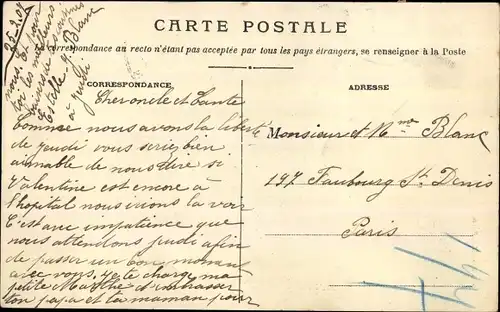 CARTE POSTALE
La correspondance au recto n'étant pas acceptée par tous les pays étrangers, se renseigner à la Poste
CORRESPONDANCE
Cher oncle et tante
Comme nous avons la liberté
de jeudi vous seriez bien
aimable de nous dire si
Valentine est encore à
l'hopital nous irions la voir
C'est avec impatience que
nous attendons jeudi afin
de passer un bon moment
avec vous. Je te charge ma
petite Marthe d'embrasser
ton papa et ta maman pour
nous. Et pour
toi les meilleurs
baisers de tes cousines
Estelle J. Blanc
à jeudi
ADRESSE
Monsieur et Mme Blanc
197 Faubourg St Denis
Paris